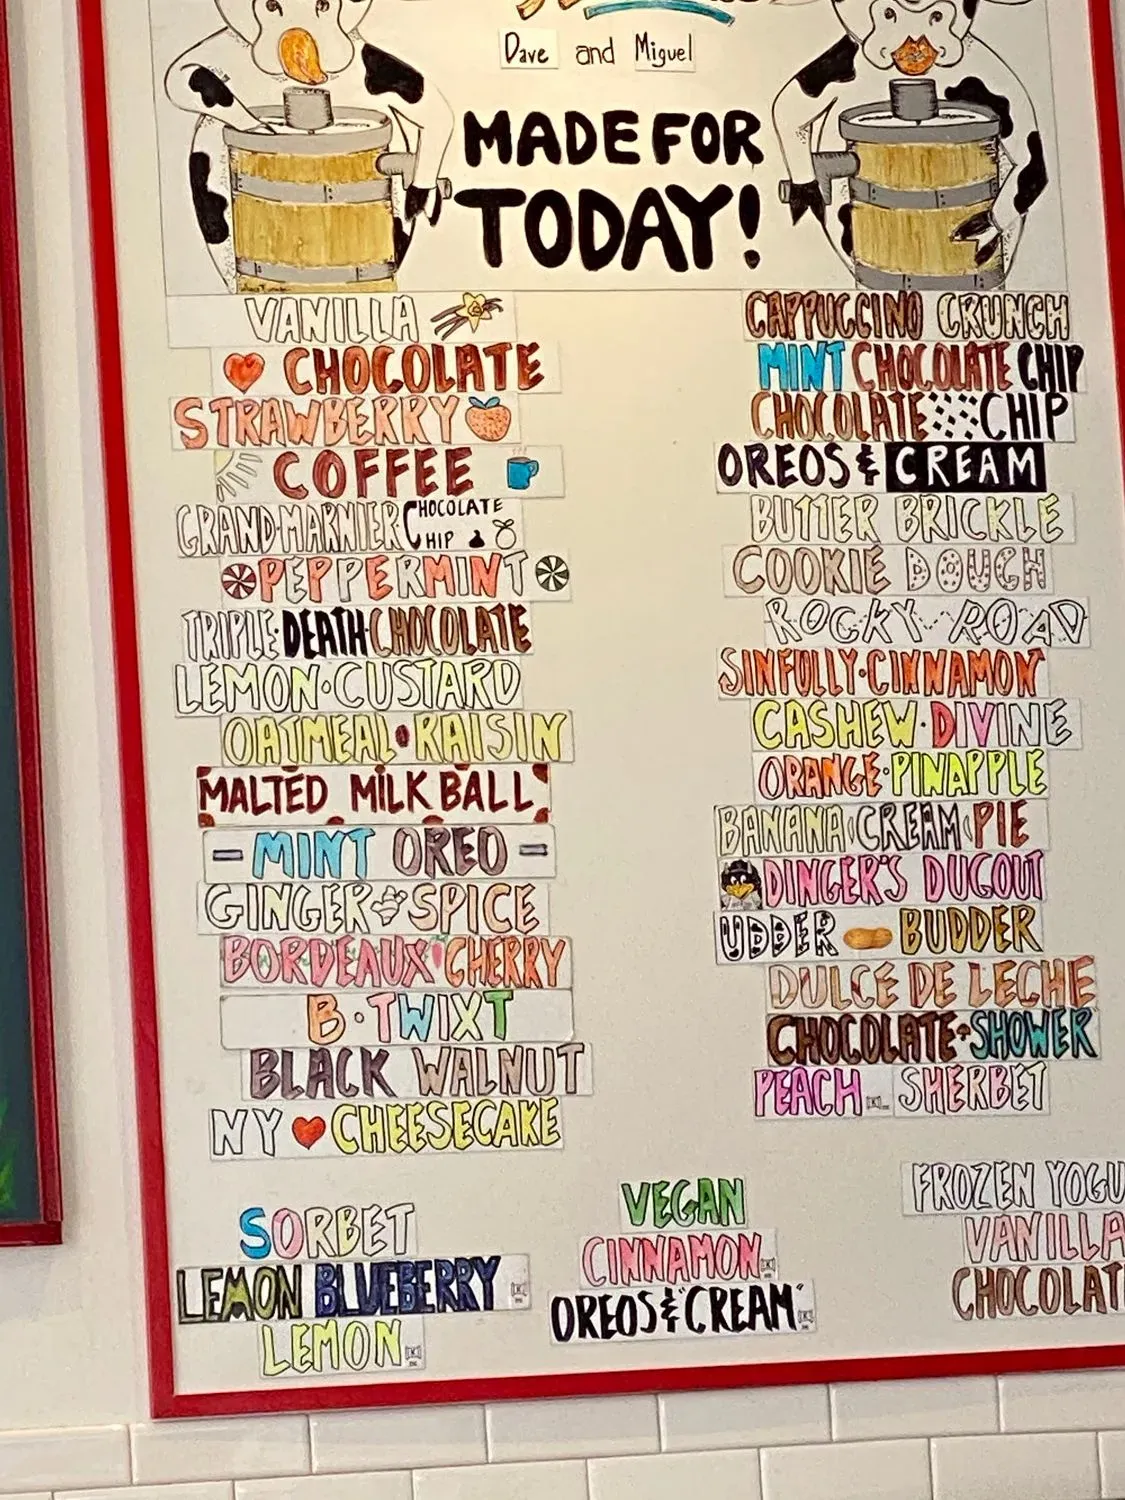 Dave and Miguel
MADE FOR
TODAY!
VANILLA
CHOCOLATE
STRAWBERRY
COFFEE
GRAND·MARNIER CHOCOLATE CHIP
PEPPERMINT
TRIPLE·DEATH·CHOCOLATE
LEMON·CUSTARD
OATMEAL·RAISIN
MALTED MILK BALL
MINT OREO
GINGER SPICE
BORDEAUX CHERRY
B·TWIXT
BLACK WALNUT
NY CHEESECAKE
CAPPUCCINO CRUNCH
MINT CHOCOLATE CHIP
CHOCOLATE CHIP
OREOS & CREAM
BUTTER BRICKLE
COOKIE DOUGH
ROCKY ROAD
SINFULLY·CINNAMON
CASHEW·DIVINE
ORANGE·PINAPPLE
BANANA CREAM PIE
DINGER'S DUGOUT
UDDER BUDDER
DULCE DE LECHE
CHOCOLATE SHOWER
PEACH SHERBET
SORBET
LEMON BLUEBERRY
LEMON
VEGAN
CINNAMON
OREOS & "CREAM"
FROZEN YOGU
VANILLA
CHOCOLAT